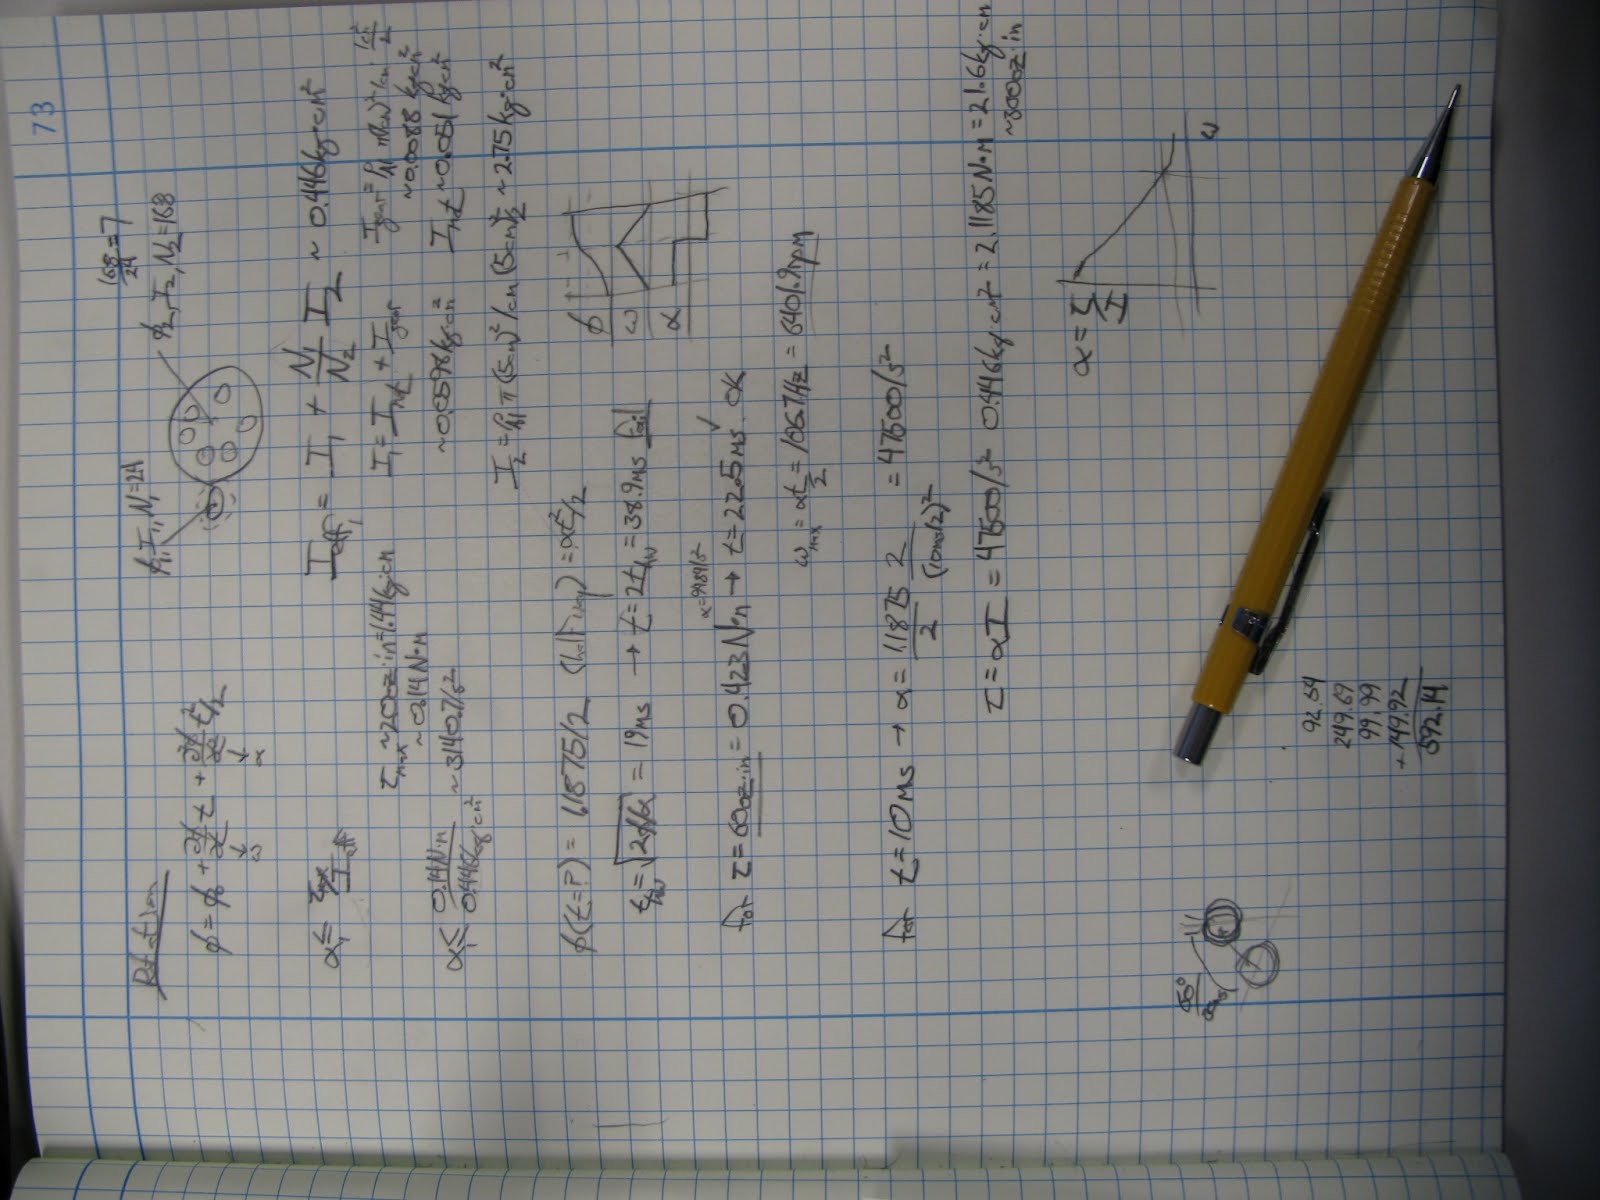 73
Rotation
φ = φ₀ + ∂φ/∂t t + ∂²φ/∂t² t²/2
ω α
φ₁, I₁, N₁=24
φ₂, I₂, N₂=168
168/24 = 7
I_eff₁ = I₁ + N₁/N₂ I₂ ~ 0.446 kg·cm²
α₁ ≤ τmax/I_eff
τmax ~ 20oz·in = 1.44kg·cm
~ 0.14 N·m
I₁ = I_rot + I_gear
~0.0598 kg·cm²
~0.0088 kg·cm²
I_rot ~ 0.051 kg·cm²
α₁ ≤ 0.14N·m/0.446kg·cm² ~ 3140.7/s²
I₂ = ρ_Al π (5cm)² 1cm (5cm)²/2 ~ 2.75 kg·cm²
φ(t=?) = 1.1875/2 (half way) = αt²/2
φ
ω
α
t_hw = √(2φ/α) = 19ms → t = 2t_hw = 38.9ms fail
α=9484/s²
for τ = 60oz·in = 0.423 N·m → t = 22.5ms ✓ OK
ωmax = αt/2 = 106.7Hz = 6401.9rpm
for t = 10ms → α = 1.1875/2 2/(10ms/2)² = 47500/s²
τ = αI = 47500/s² 0.446kg·cm² = 2.1185N·m = 21.6kg·cm
~300oz·in
α = τ/I
ω
50°
92.54
249.69
99.99
+ 149.92
592.14